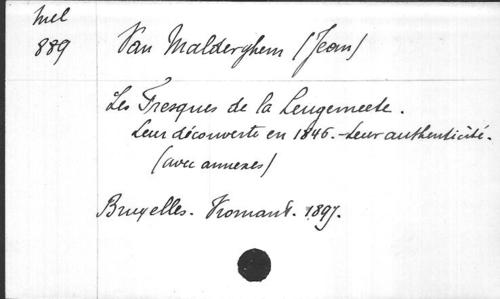 Mel
889
Van Malderghem (Jean)
Les Fresques de la Leugemeete.
Leur découverte en 1846. - Leur authenticité.
(avec annexes)
Bruxelles. Vromant. 1897.